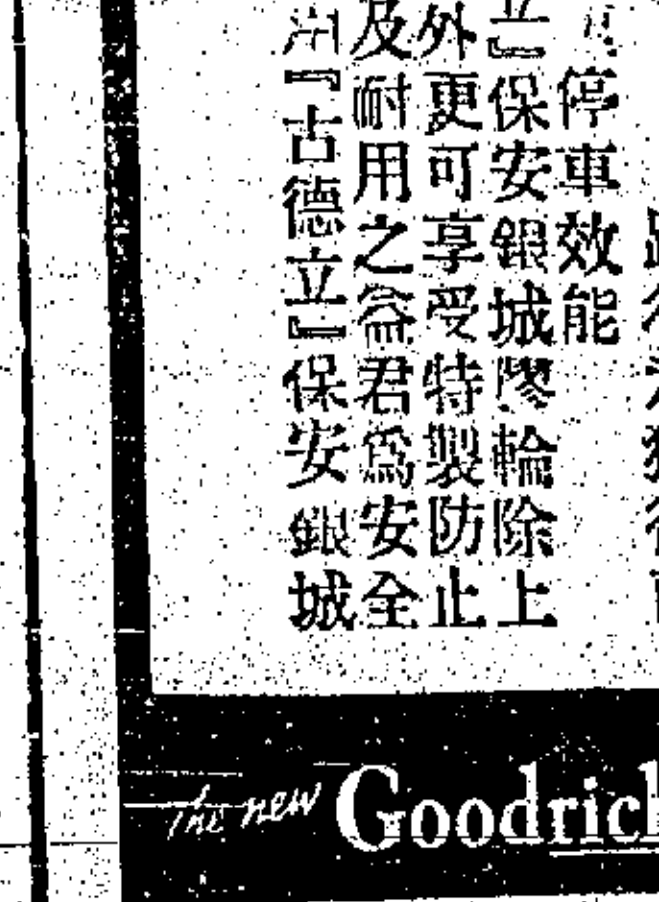 停車效能
立』保安銀城膠輪除上
外更可享受特製防止
及耐用之益君爲安全
『古德立』保安銀城
The new Goodrich